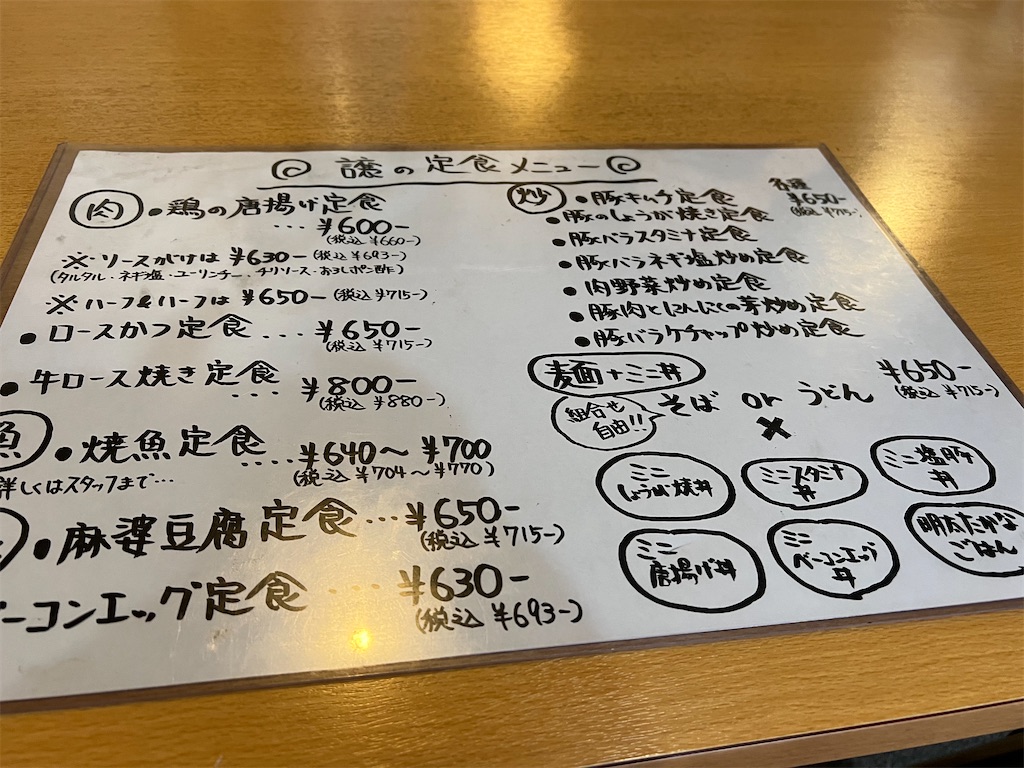 譲の定食メニュー
肉
・鶏の唐揚げ定食
… ¥600-
(税込 ¥660-)
※ ソースがけは ¥630- (税込 ¥693-)
(タルタル・ネギ塩・ユーリンチー・チリソース・おろしポン酢)
※ ハーフ&ハーフは ¥650- (税込 ¥715-)
・ロースかつ定食 … ¥650-
(税込 ¥715-)
・牛ロース焼き定食 … ¥800-
(税込 ¥880-)
魚
・焼魚定食 …. ¥640～¥700
(税込 ¥704～¥770)
詳しくはスタッフまで…
・麻婆豆腐定食 … ¥650-
(税込 ¥715-)
ーコンエッグ定食 … ¥630-
(税込 ¥693-)
炒
・豚キムチ定食
各種
¥650-
(税込 ¥715-)
・豚のしょうが焼き定食
・豚バラスタミナ定食
・豚バラネギ塩炒め定食
・肉野菜炒め定食
・豚肉とにんにくの芽炒め定食
・豚バラケチャップ炒め定食
麦面+ミニ丼
¥650-
(税込 ¥715-)
組合せ
自由!!
そば or うどん
×
ミニ
しょうが焼丼
ミニスタミナ
丼
ミニ塩豚
丼
ミニ
唐揚げ丼
ミニ
ベーコンエッグ
丼
明太たかな
ごはん